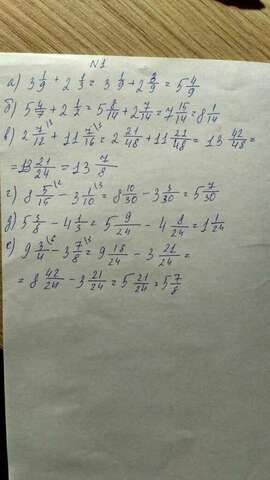 N1
а) 3 1/9 + 2 1/3 = 3 1/9 + 2 3/9 = 5 4/9
б) 5 4/7 + 2 1/2 = 5 8/14 + 2 7/14 = 7 15/14 = 8 1/14
в) 2 7/12 + 11 7/16 \3 = 2 21/48 + 11 21/48 = 13 42/48 =
= 13 21/24 = 13 7/8
г) 8 5/15 \2 - 3 1/10 \3 = 8 10/30 - 3 3/30 = 5 7/30
д) 5 3/8 - 4 1/3 = 5 9/24 - 4 8/24 = 1 1/24
е) 9 3/4 \6 - 3 7/8 \3 = 9 18/24 - 3 21/24 =
= 8 42/24 - 3 21/24 = 5 21/24 = 5 7/8